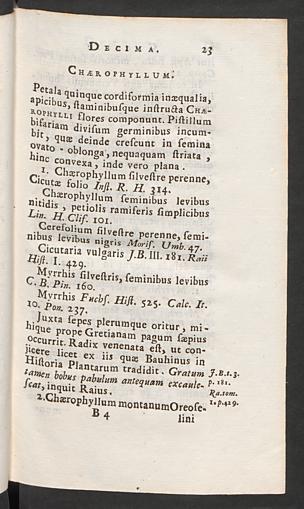 DECIMA. 23
CHÆROPHYLLUM.
Petala quinque cordiformia inæqualia,
apicibus, staminibusque instructa CHÆ-
ROPHYLLI flores componunt. Pistillum
bifariam divisum germinibus incum-
bit, quæ deinde crescunt in semina
ovato-oblonga, nequaquam striata,
hinc convexa, inde vero plana.
1. Chærophyllum silvestre perenne,
Cicutæ folio Inst. R. H. 314.
Chærophyllum seminibus levibus
nitidis, petiolis ramiferis simplicibus
Lin. H. Clif. 101.
Cerefolium silvestre perenne, semi-
nibus levibus nigris Moris. Umb. 47.
Cicutaria vulgaris J. B. III. 181. Raii
Hist. I. 429.
Myrrhis silvestris, seminibus levibus
C. B. Pin. 160.
Myrrhis Fuchs. Hist. 525. Calc. It.
10. Pon. 237.
Juxta sepes plerumque oritur, mi-
hique prope Gretianam pagum sæpius
occurrit. Radix venenata est, ut con-
jicere licet ex iis quæ Bauhinus in
Historia Plantarum tradidit. Gratum J. B. t. 3.
tamen bobus pabulum antequam excaule- p. 181.
scat, inquit Raius. Ra. tom.
1. p. 429.
2. Chærophyllum montanum Oreose-
B 4 lini